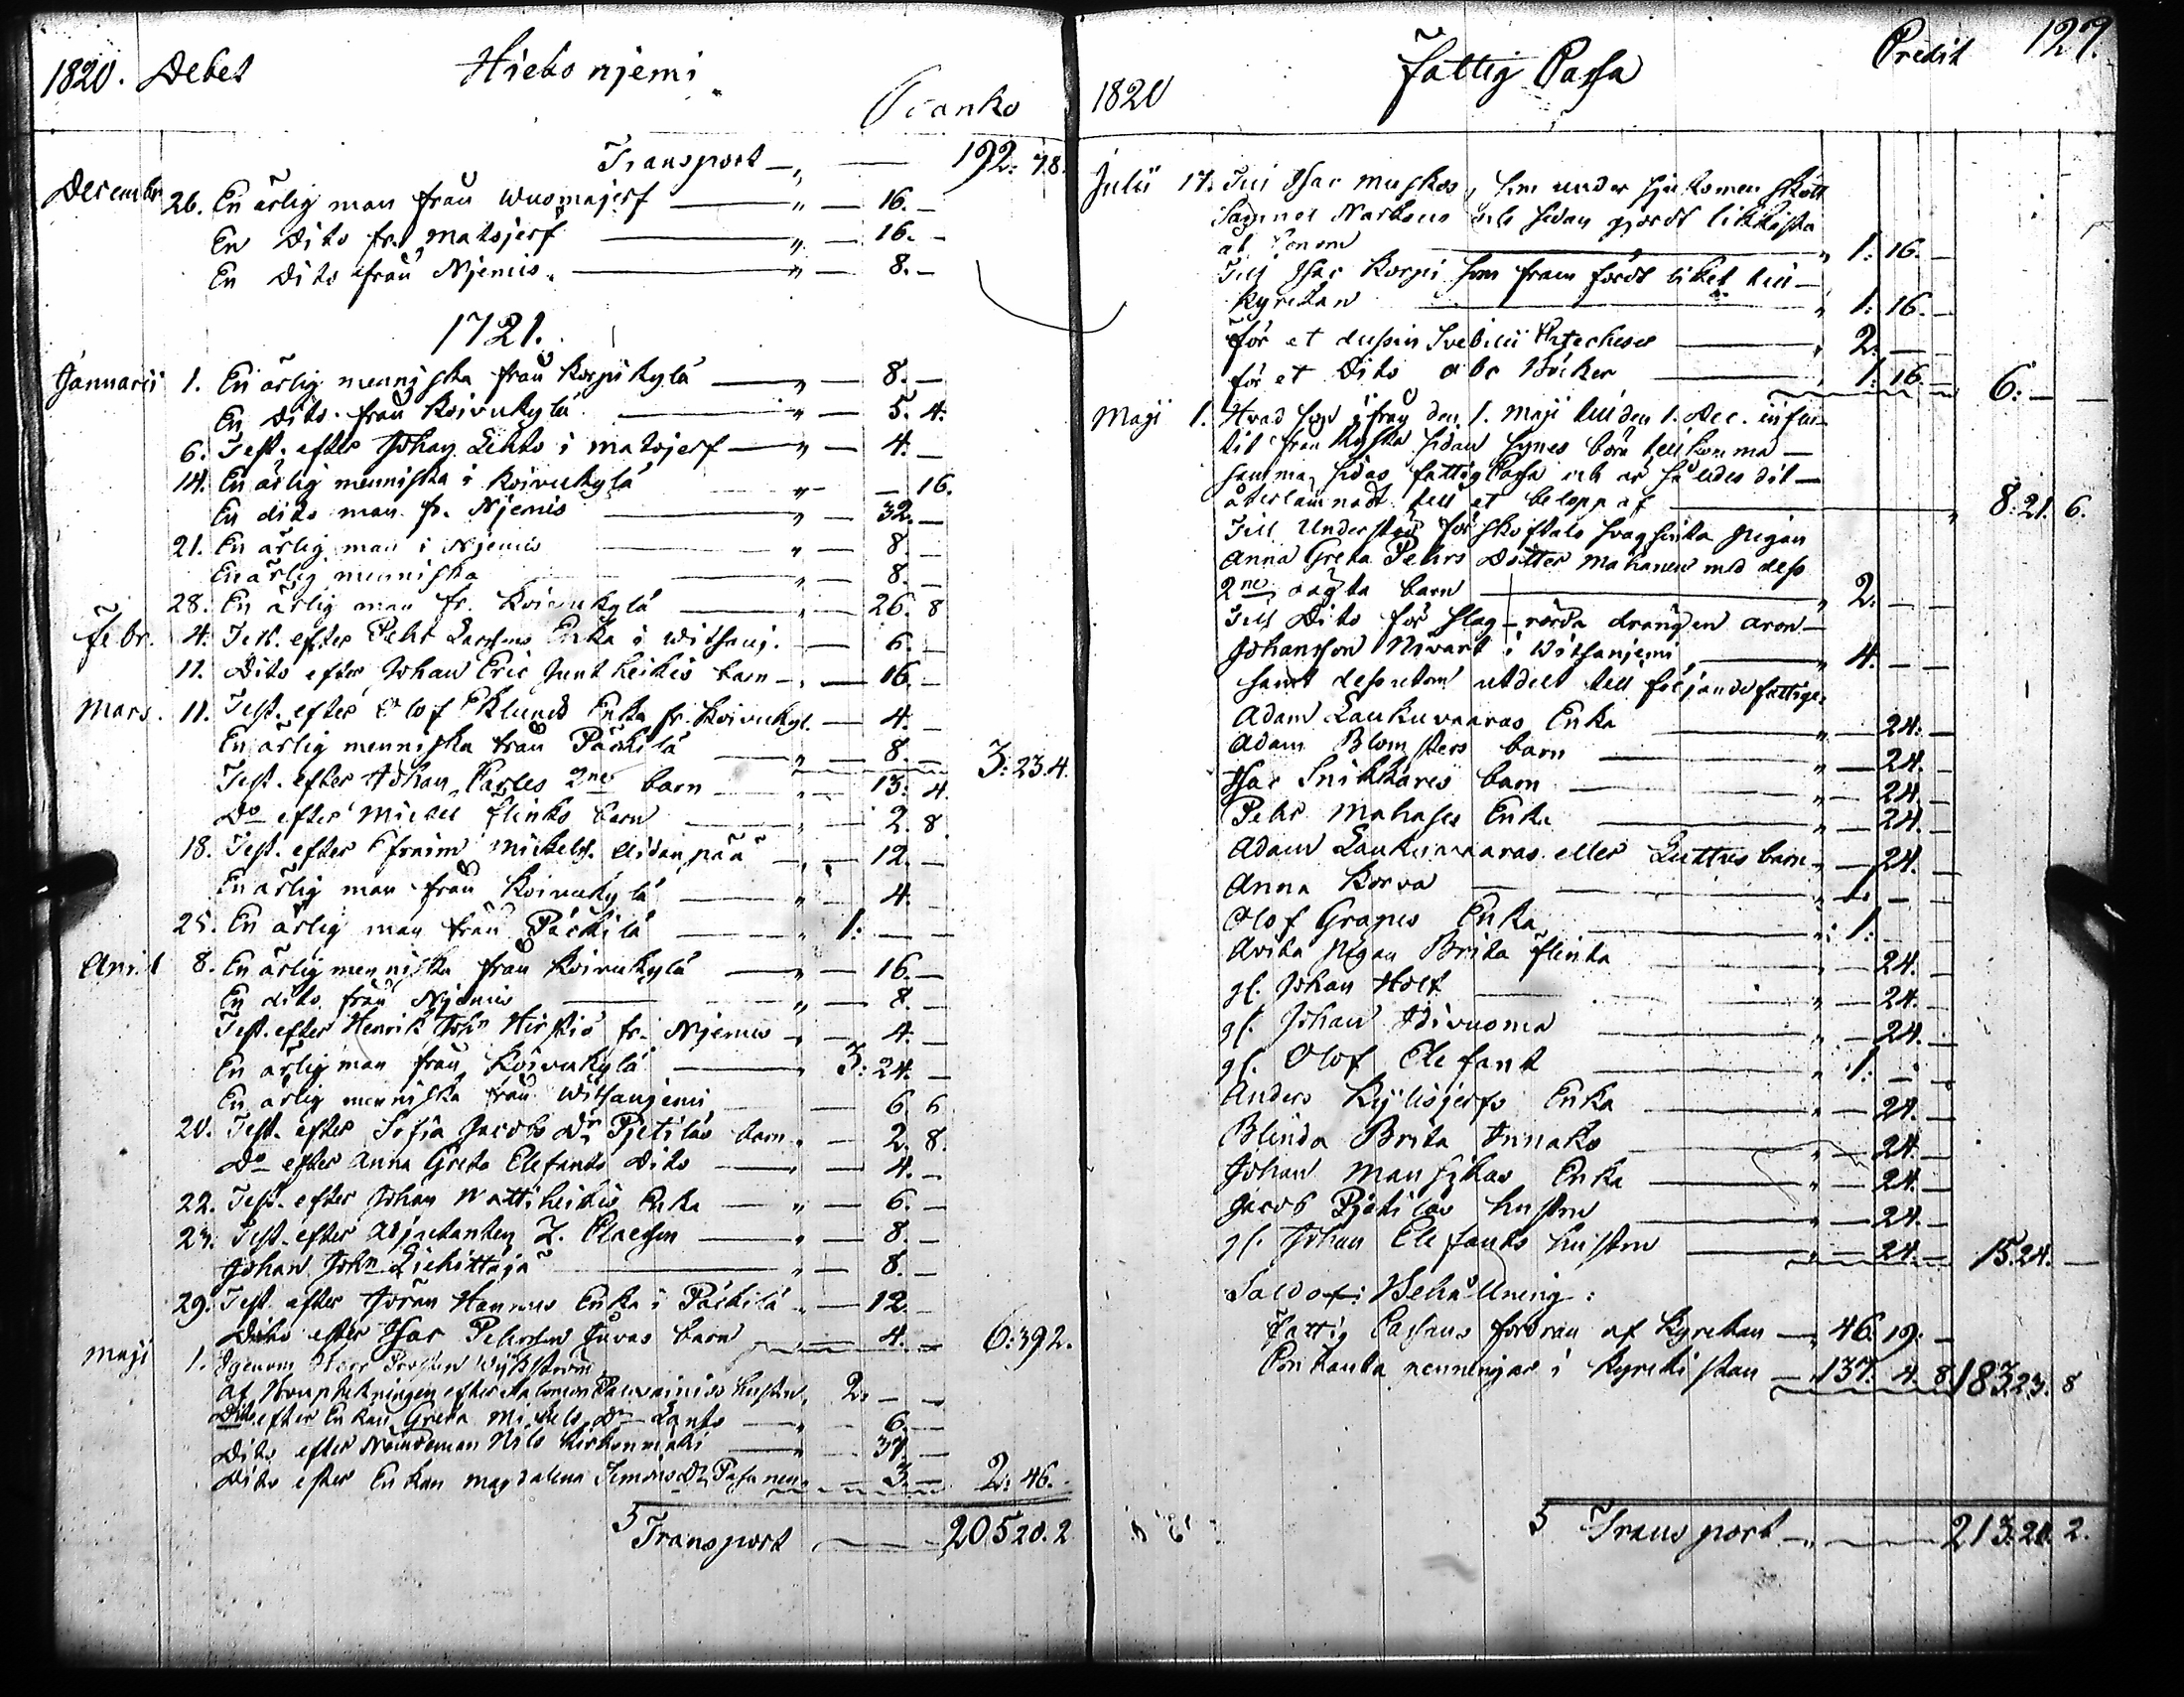 1820. Debet Hieto njemi
Banko
Transport — " — 192: 7.8.
Decembr 26. En ärlig man från Wuomajerf — " — 16. —
En Dito fr. Matojerf — " — 16. —
En Dito från Njemis. — " — 8. —
1721.
Januarii 1. En ärlig menniska från Korpikylä — " — 8. —
En Dito. från Koivukylä — " — 5. 4.
6. Test. efter Johan Lehto i Matojerf — " — 4. —
14. En ärlig menniska i Koivukylä " — — 16.
En dito man fr. Njemis — " — 32. —
21. En ärlig man i Njemis — " — 8. —
En ärlig menniska — " — 8. —
28. En ärlig man fr. Koivukylä — " — 26. 8
Febr. 4. Test. efter Pehr Larssons Enka i Witsanj. — 6. —
11. Dito efter Johan Eric Junt heikis barn — " — 16. —
Mars. 11. Test. efter Olof Eklunds Enka fr. Koivukyl. — 4. —
En ärlig menniska från Päckilä — " — 8. — 3: 23.4.
Test. efter Johan Carles 2ne barn — " — 13. 4.
Do efter Michel Flinks barn — " — 2. 8.
18. Test. efter Efraim Mickels. Aidanpää — " — 12. —
En ärlig man från Koivukylä — " — 4. —
25. En ärlig man från Päckilä — " 1: — —
April 8. En ärlig menniska från Koivukylä — " — 16. —
En dito från Njemis — " — 8. —
Test. efter Henrik John Hirstiö fr. Njemis — " — 4. —
En ärlig man från Koivukylä — " 3: 24. —
En ärlig menniska från Witsanjemi — 6. 6
20. Test. efter Sofia Jacobs Dr Pjetiläs barn " — 2. 8.
Do efter Anna Greta Elefants Dito — " — 4. —
22. Test. efter Johan Mattiheikis Enka — " — 6. —
23. Test. efter Adjutanten Z. Claesson — " — 8. —
Johan John Liehittäjä — " — 8. —
29. Test. efter Jöran Hannus Enka i Päckilä " — 12. —
Dito efter Isac Pehrsson Juvas barn — " — 4. — 6: 39 2.
Maji 1. Igenom Herr Prosten Wijkström
af Bouptekningen efter hustru 2. — —
Dito efter Enkan Greta Mickels Dr Lanto — " — 6. —
Dito efter Nämdeman Nils Kirkonmäki — " — 37. —
Dito efter Enkan Magdalena Simons Dr — 3. — 2: 46.
5 Transport — 205 20. 2
1820 Fattig Cassa Credit 127.
Julii 17. Till Isac Muskos, som under sjukomen skött
Samuel Narkens och sedan gjordt likkista
åt honom — " 1: 16. —
Till Isac Korpi som fram fördt liket till —
Kyrckan — " 1: 16. —
för et dussin Svebilii Catecheser — " 2. — —
för et Dito abc Böcker — " 1: 16 — 6: — —
Maji 1. Hvad som ifrån den 1. Maji till den 1. Dec. influ-
tit från Ryska sidan synes böra till komma —
samma sidas fattig Cassa och är således dit —
återlämnadt till et belopp af — " 8: 21. 6.
Till Understöd för svagsinta pigan
Anna Greta Pehrs Dotter Mahanen med dess
2ne oägta barn — " 2. — —
Till Dito för slag-rörda drängen Aron —
Johansson Nivart i Witsanjemi — " 4. — —
samt dessutom utdelt till följande fattige.
Adam Laukuvaaras Enka — " — 24. —
Adam Blomsters barn — " — 24 —
Isac Snikkares barn — " — 24. —
Pehr Mahases Enka — " — 24. —
Adam Laukuvaaras eller Luttus barn " — 24. —
Anna Korva — " 1. — —
Olof Grapes Enka — " 1: —
Avita pigan Brita Flinka — " — 24. —
gl. Johan Holt — " — 24. —
gl. Johan Hivuoma — " — 24. —
gl. Olof Elefant — " 1: — —
Anders Kylisjerfs Enka — " — 24. —
Blinda Brita Innako — " — 24. —
Johan Mansikas Enka — " — 24. —
Jacob Pjetiläs hustru — " — 24. —
gl. Johan Elefants hustru — " — 24. — 15.24. —
Saldo i Behållning:
Fattig Cassans fordran af Kyrckan — 46. 19. —
Contanta penningar i Kyrckistan — 137. 4. 8. 183 23. 8
5 Transport — " — 213. 20. 2.